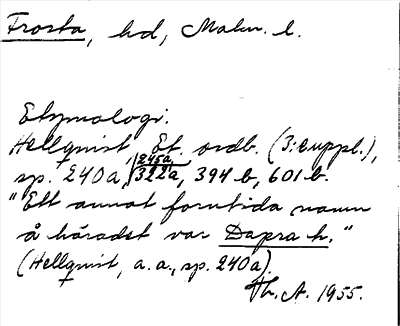 Frosta, hd, Malm. l.
Etymologi.
Hellquist, Et. ordb. (3: suppl.),
245a,
sp. 240a, 322a, 394 b, 601 b.
"Ett annat forntida namn
å häradet var Dapra h."
(Hellquist, a. a., sp. 240a).
Th. A. 1955.